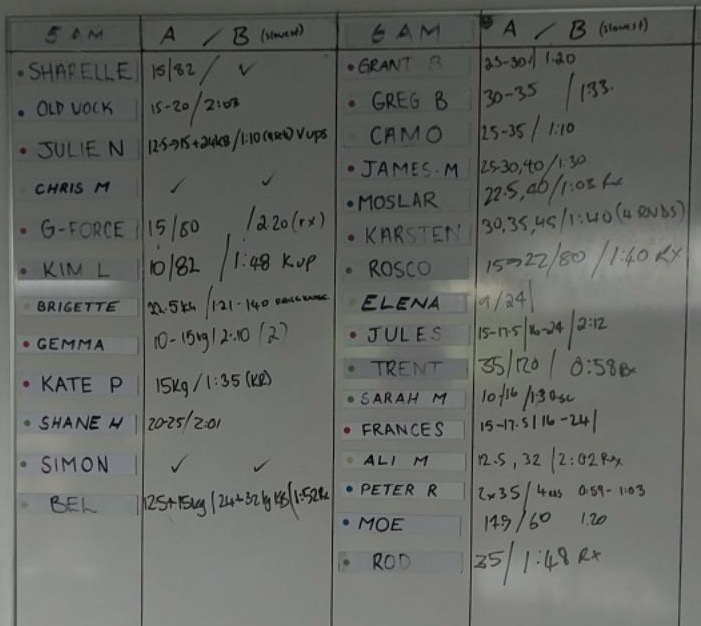 5 AM A / B (slowest)
SHARELLE 15/82 / ✓
OLD VOCK 15-20/2:03
JULIE N 12.5→15+24KB/1:10 Vups
CHRIS M ✓ ✓
G-FORCE 15/60 /2.20(rx)
KIM L 10/82 / 1:48 Kup
BRIGETTE 22.5kg /1:21-1:40
GEMMA 10-15kg/2:10 (2)
KATE P 15kg/1:35 (KR)
SHANE H 20-25/2:01
SIMON ✓ ✓
BEL 12.5+15kg/24+32kg KB/1:52Rx
6 AM A / B (slowest)
GRANT B 25-30/ 1:20
GREG B 30-35 /1:33.
CAMO 25-35/ 1:10
JAMES.M 25-30,40/1:30
MOSLAR 22.5,40/1:03 Rx
KARSTEN 30,35,45/1:40(4 RNDS)
ROSCO 15→22/80 /1:40 RX
ELENA /24/
JULES 15-17.5/16-24/2:12
TRENT 35/120 / 0:58Rx
SARAH M 10/16 /1:30sc
FRANCES 15-17.5/16-24/
ALI M 12.5, 32 /2:02Rx
PETER R 2x35/ 0:59-1:03
MOE /60 1.20
ROD 35/1:48 Rx